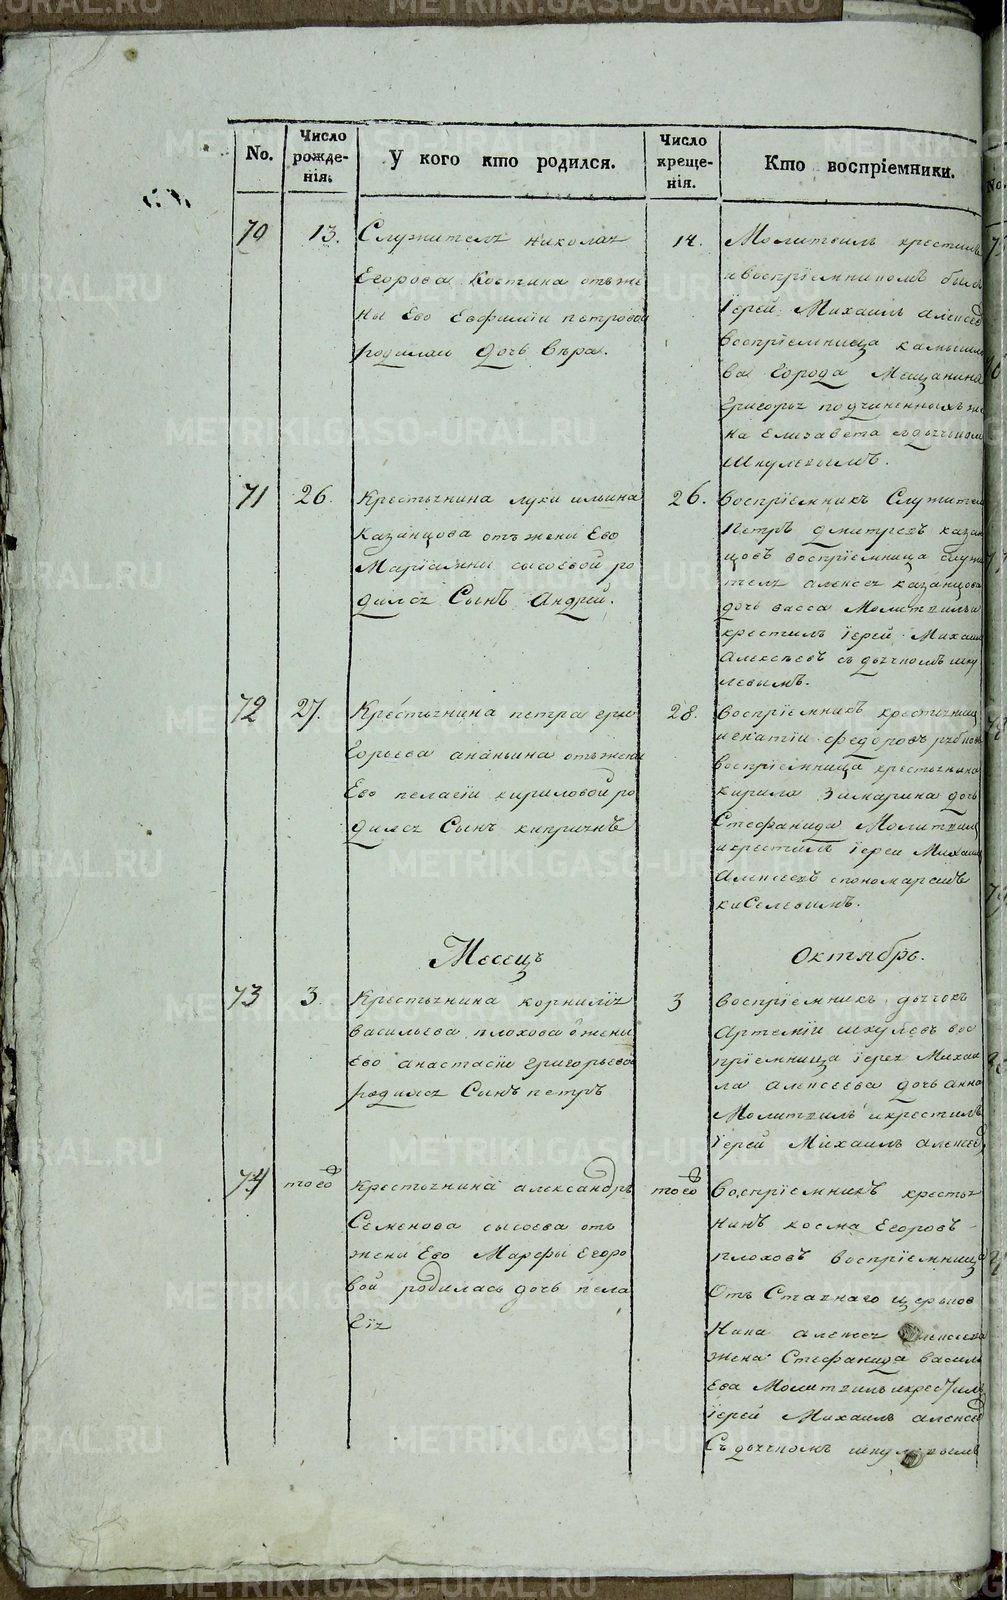 No.
Число рожде-
нія.
У кого кто родился.
Число креще-
нія.
Кто воспріемники.
70
13.
Служителя николая
Егорова Костина отъ же
ны Ево Евфиміи петровой
родилась дочь вѣра.
14.
Молитвилъ крестилъ
и воспріемникомъ былъ
іерей Михаилъ алексеев
воспріемница камышло
ва города Мещанина
григорья подчиненныхъ же
на Елизавета съ дьячкомъ
Шкулевымъ.
71
26.
Крестьянина луки ильина
Казанцова отъ жены Ево
Маріамны сысоевой ро
дился Сынъ Андрей.
26.
воспріемникъ Служитель
Петръ дмитревъ казан
цовъ воспріемница служи
теля алексея казанцова
дочь васса Молитвилъ и
крестилъ іерей Михаил
Алексѣевъ съ дьячкомъ шку
левымъ.
72
27.
Крестьянина петра гри
горьева ананьина отъ жены
Ево пелагіи кириловой ро
дился Сынъ киприянъ
28.
воспріемникъ крестьянин
игнатіи федоровъ
воспріемница крестьянина
кирила Зимарина дочь
Стефанида Молитвил
и крестилъ іереи Михаил
Алексеевъ спономаремъ
киселевымъ.
Месецъ
Октябрь.
73
3.
Крестьянина корнилія
васильева плохова от жены
ево анастасіи григорьевой
родился Сынъ петръ
3
воспріемникъ дьячокъ
Артеміи шкулевъ вос
пріемница іерея Михаи
ла алексеева дочь анна
Молитвилъ и крестилъ
іерей Михаилъ алексеев
74
тогож
крестьянина александра
Семенова сысоева отъ
жены Ево Марфы Егоро
вой родилась дочь пела
гія
тогож
Воспріемникъ крестья
нинъ косма Егоровъ
плоховъ воспріемница
Отъ Ставнаго церков
ника алексея алексеева
жена Стефанида васил
ева Молитвилъ и крестилъ
іерей Михаилъ алексеев
Съ дьячкомъ шкулевымъ
METRIKI.GASO-URAL.RU